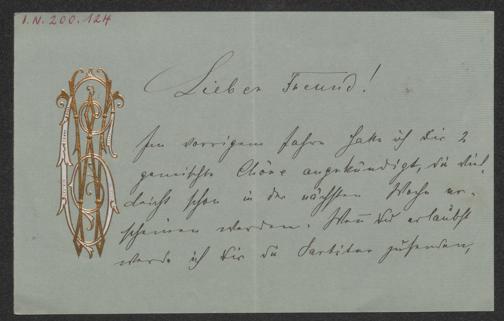 I.N. 200.124
Lieber Freund!
Im vorrigem Jahre hatte ich Dir 2
gemischte Chöre angekündigt, die viel-
leicht schon in der nächsten Woche er-
scheinen werden. Weñ Du erlaubst
werde ich Dir die Partitur zusenden,